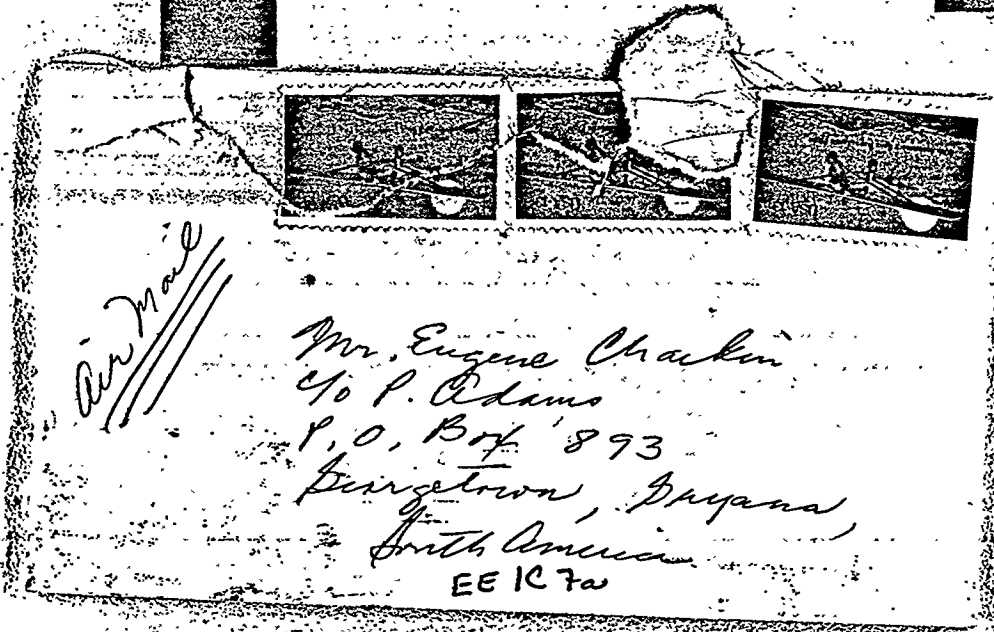 Air Mail
Mr. Eugene Chaikin
c/o P. Adams
P.O. Box 893
Georgetown, Guyana,
South America
EE 1C 7a